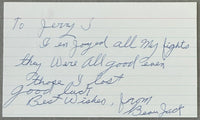 To Jerry S
I in Joyed all my fights
they were all good even
those I lost
good luck
Best Wishes, from
Beau Jack